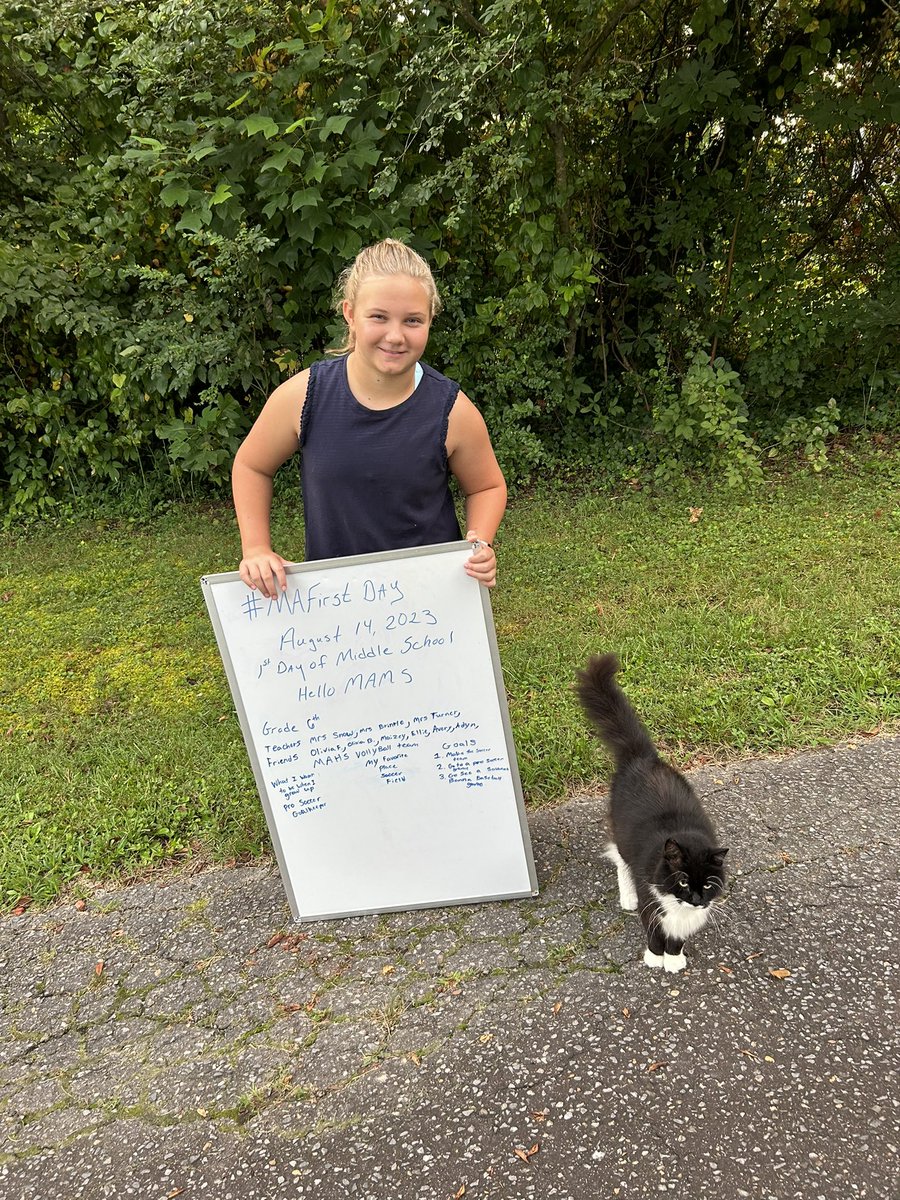 #MAFirst Day
August 14, 2023
1st Day of Middle School
Hello MAMS
Grade 6th
Teachers Mrs Snow, Mrs Brintle, Mrs Turner,
Friends Olivia F, Olivia B., Maizey, Ellie, Avery, Adlyn,
MAHS Vollyball team
What I want
to be when I
grow up
Pro Soccer
Goalkeeper
My favorite
Place
Soccer
Field
Goals
1. Make the Soccer
team
2. Go to a pro soccer
3. Go See a Savannah
Banana Baseball
game